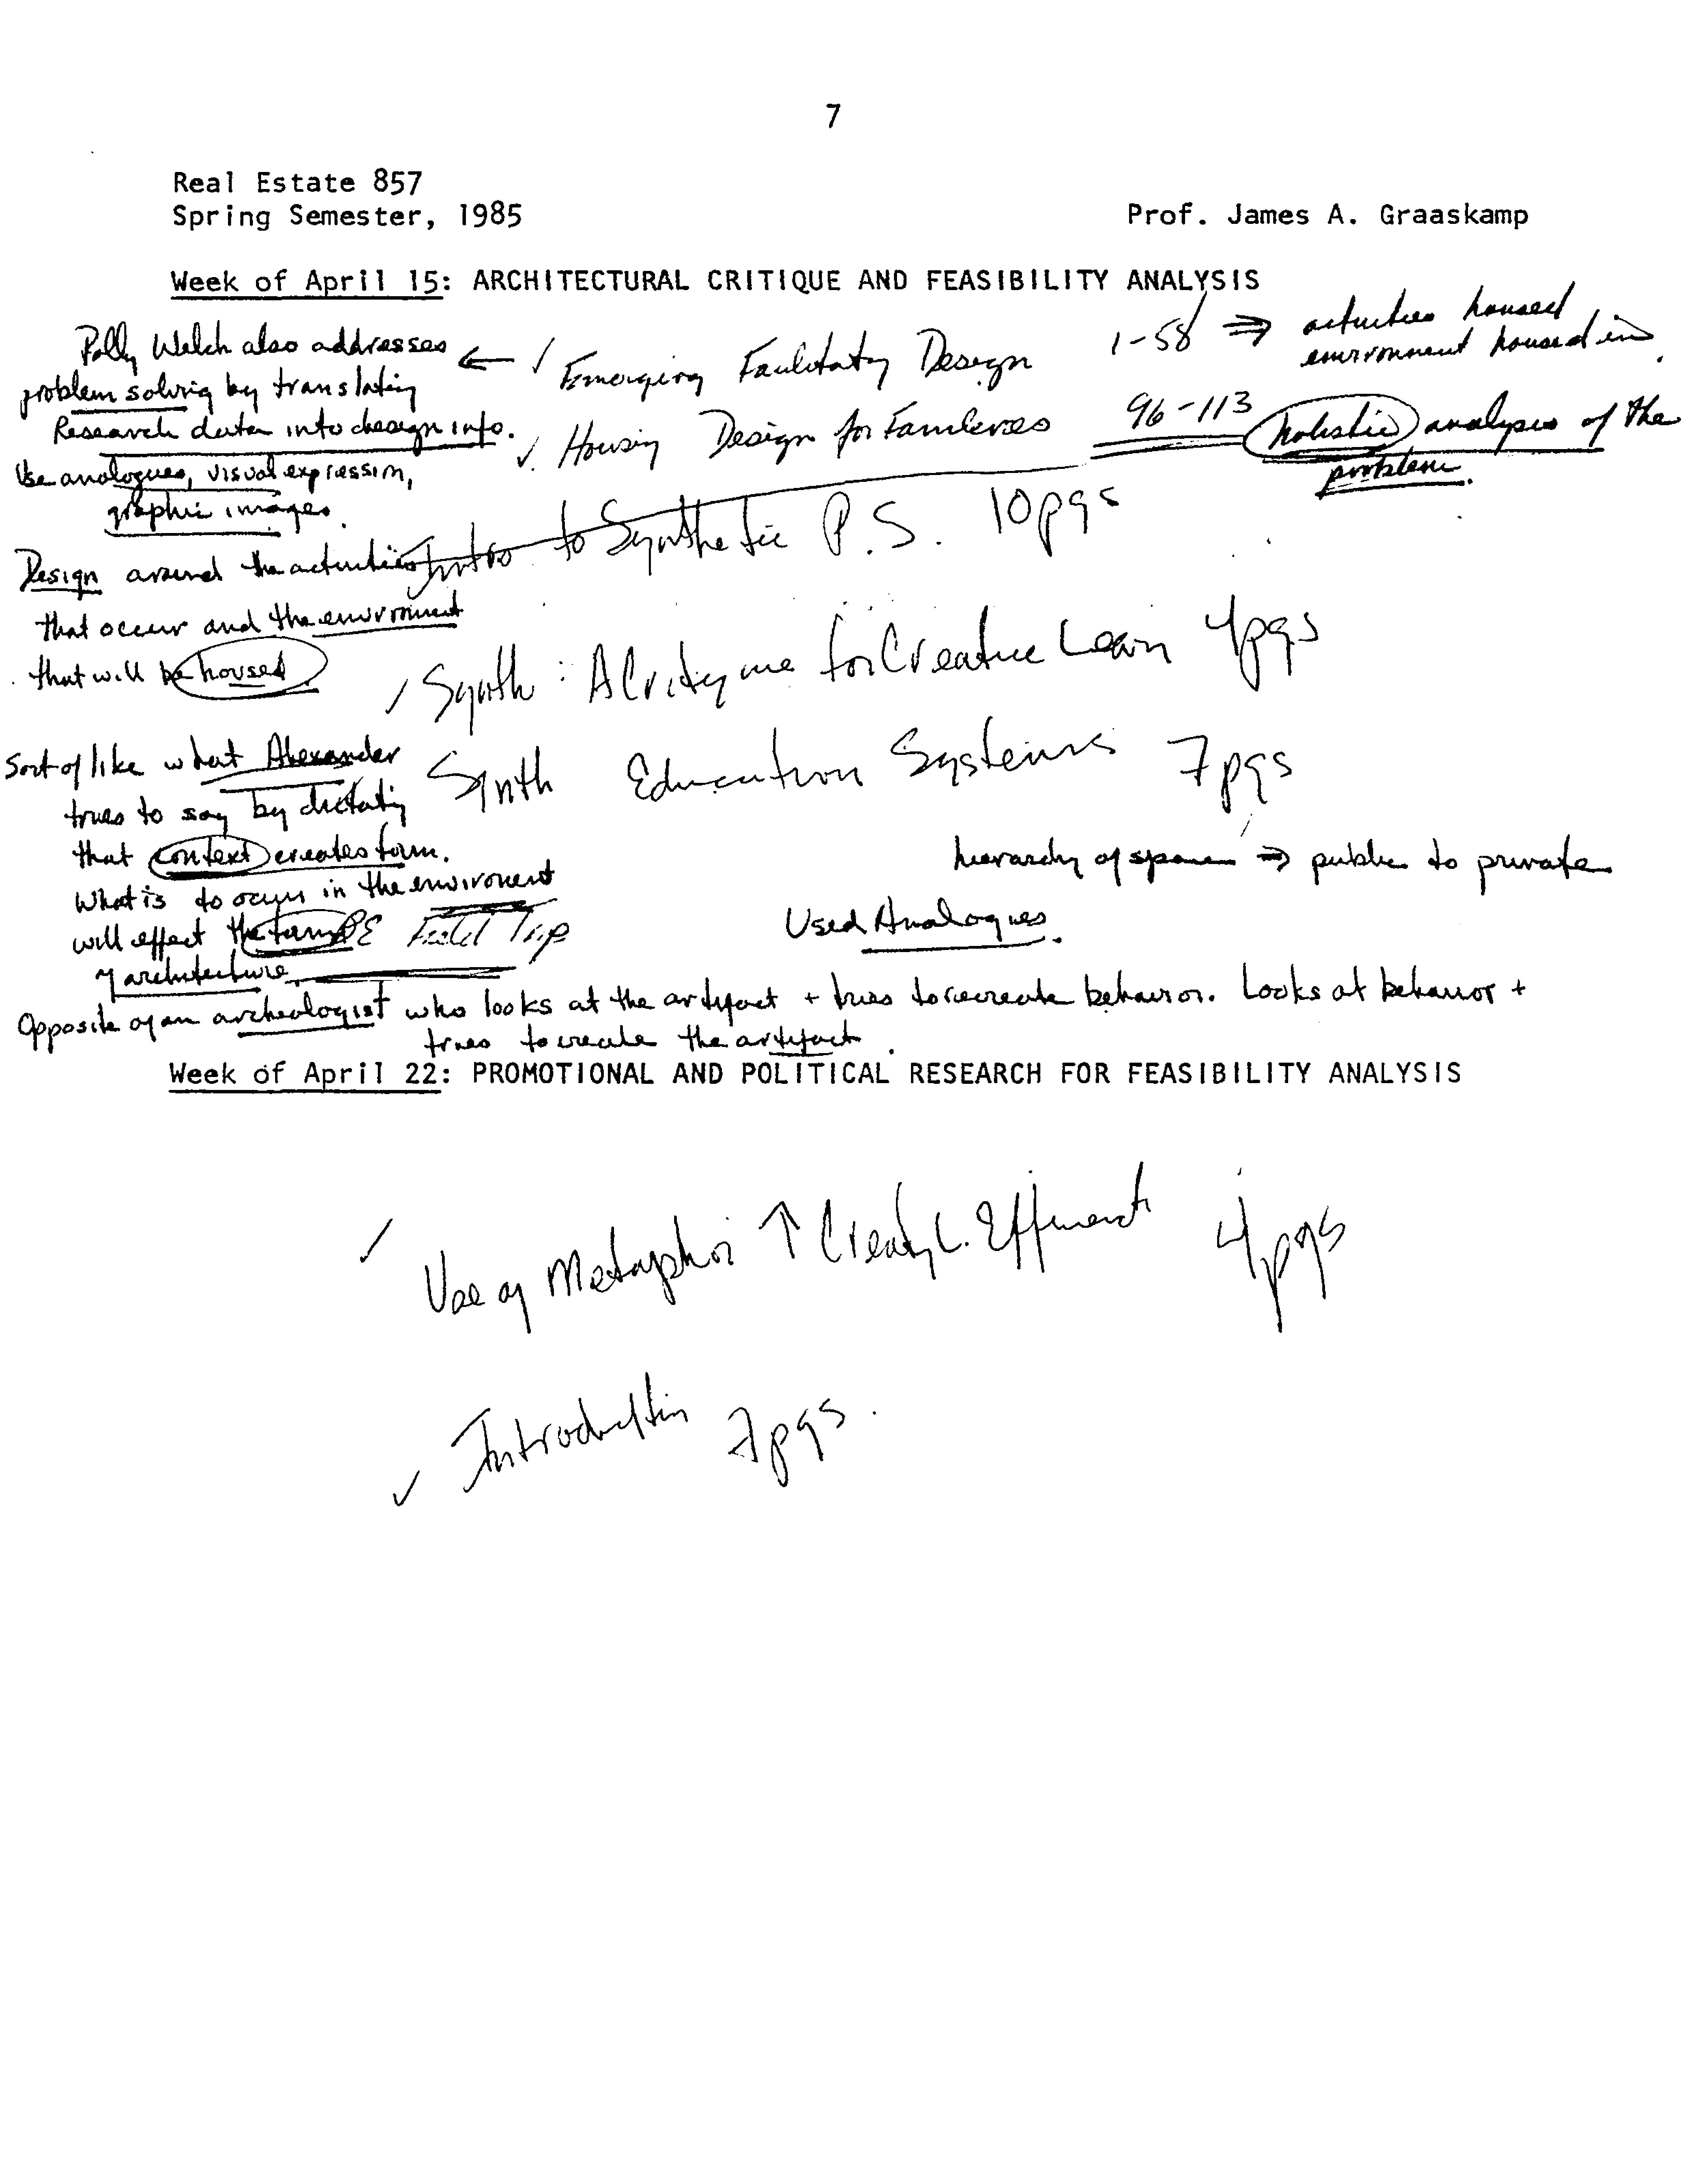 7
Real Estate 857
Spring Semester, 1985
Prof. James A. Graaskamp
Week of April 15: ARCHITECTURAL CRITIQUE AND FEASIBILITY ANALYSIS
Polly Welch also addresses
problem solving by translating
Research data into design info.
Use analogues, visual expression,
graphic images.
← ✓ Emerging Design 1-58 ⇒ activities housed
environment housed in.
✓ Housing Design for Families 96-113 holistic analysis of the
problem.
Intro to Synthetic P.S. 10pgs
Design around the activities
that occur and the environment
that will be housed.
✓ Synth: for Creative Learn 4pgs
Sort of like what Alexander
tries to say by dictating
that context creates form.
What is to occur in the environment
will effect the form
of architecture.
Synth Education Systems 7pgs
hierarchy of space ⇒ public to private
Used Analogues.
RE Field Trip
Opposite of an archeologist who looks at the artifact + tries to recreate behavior. Looks at behavior +
tries to create the artifact.
Week of April 22: PROMOTIONAL AND POLITICAL RESEARCH FOR FEASIBILITY ANALYSIS
✓ Use of Metaphor ↑ 4pgs
✓ Introduction 7pgs.